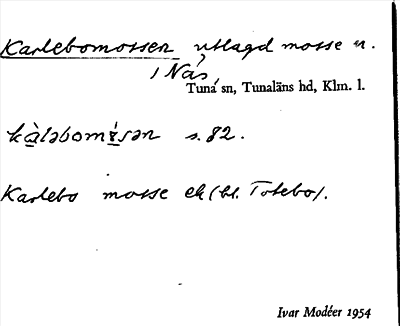 Karlebomossen utlagd mosse n.
i Näs,
Tuna sn, Tunaläns hd, Klm. l.
kàləbomɛ́sən s. 82.
Karlebo mosse ek (bl. Totebo).
Ivar Modéer 1954